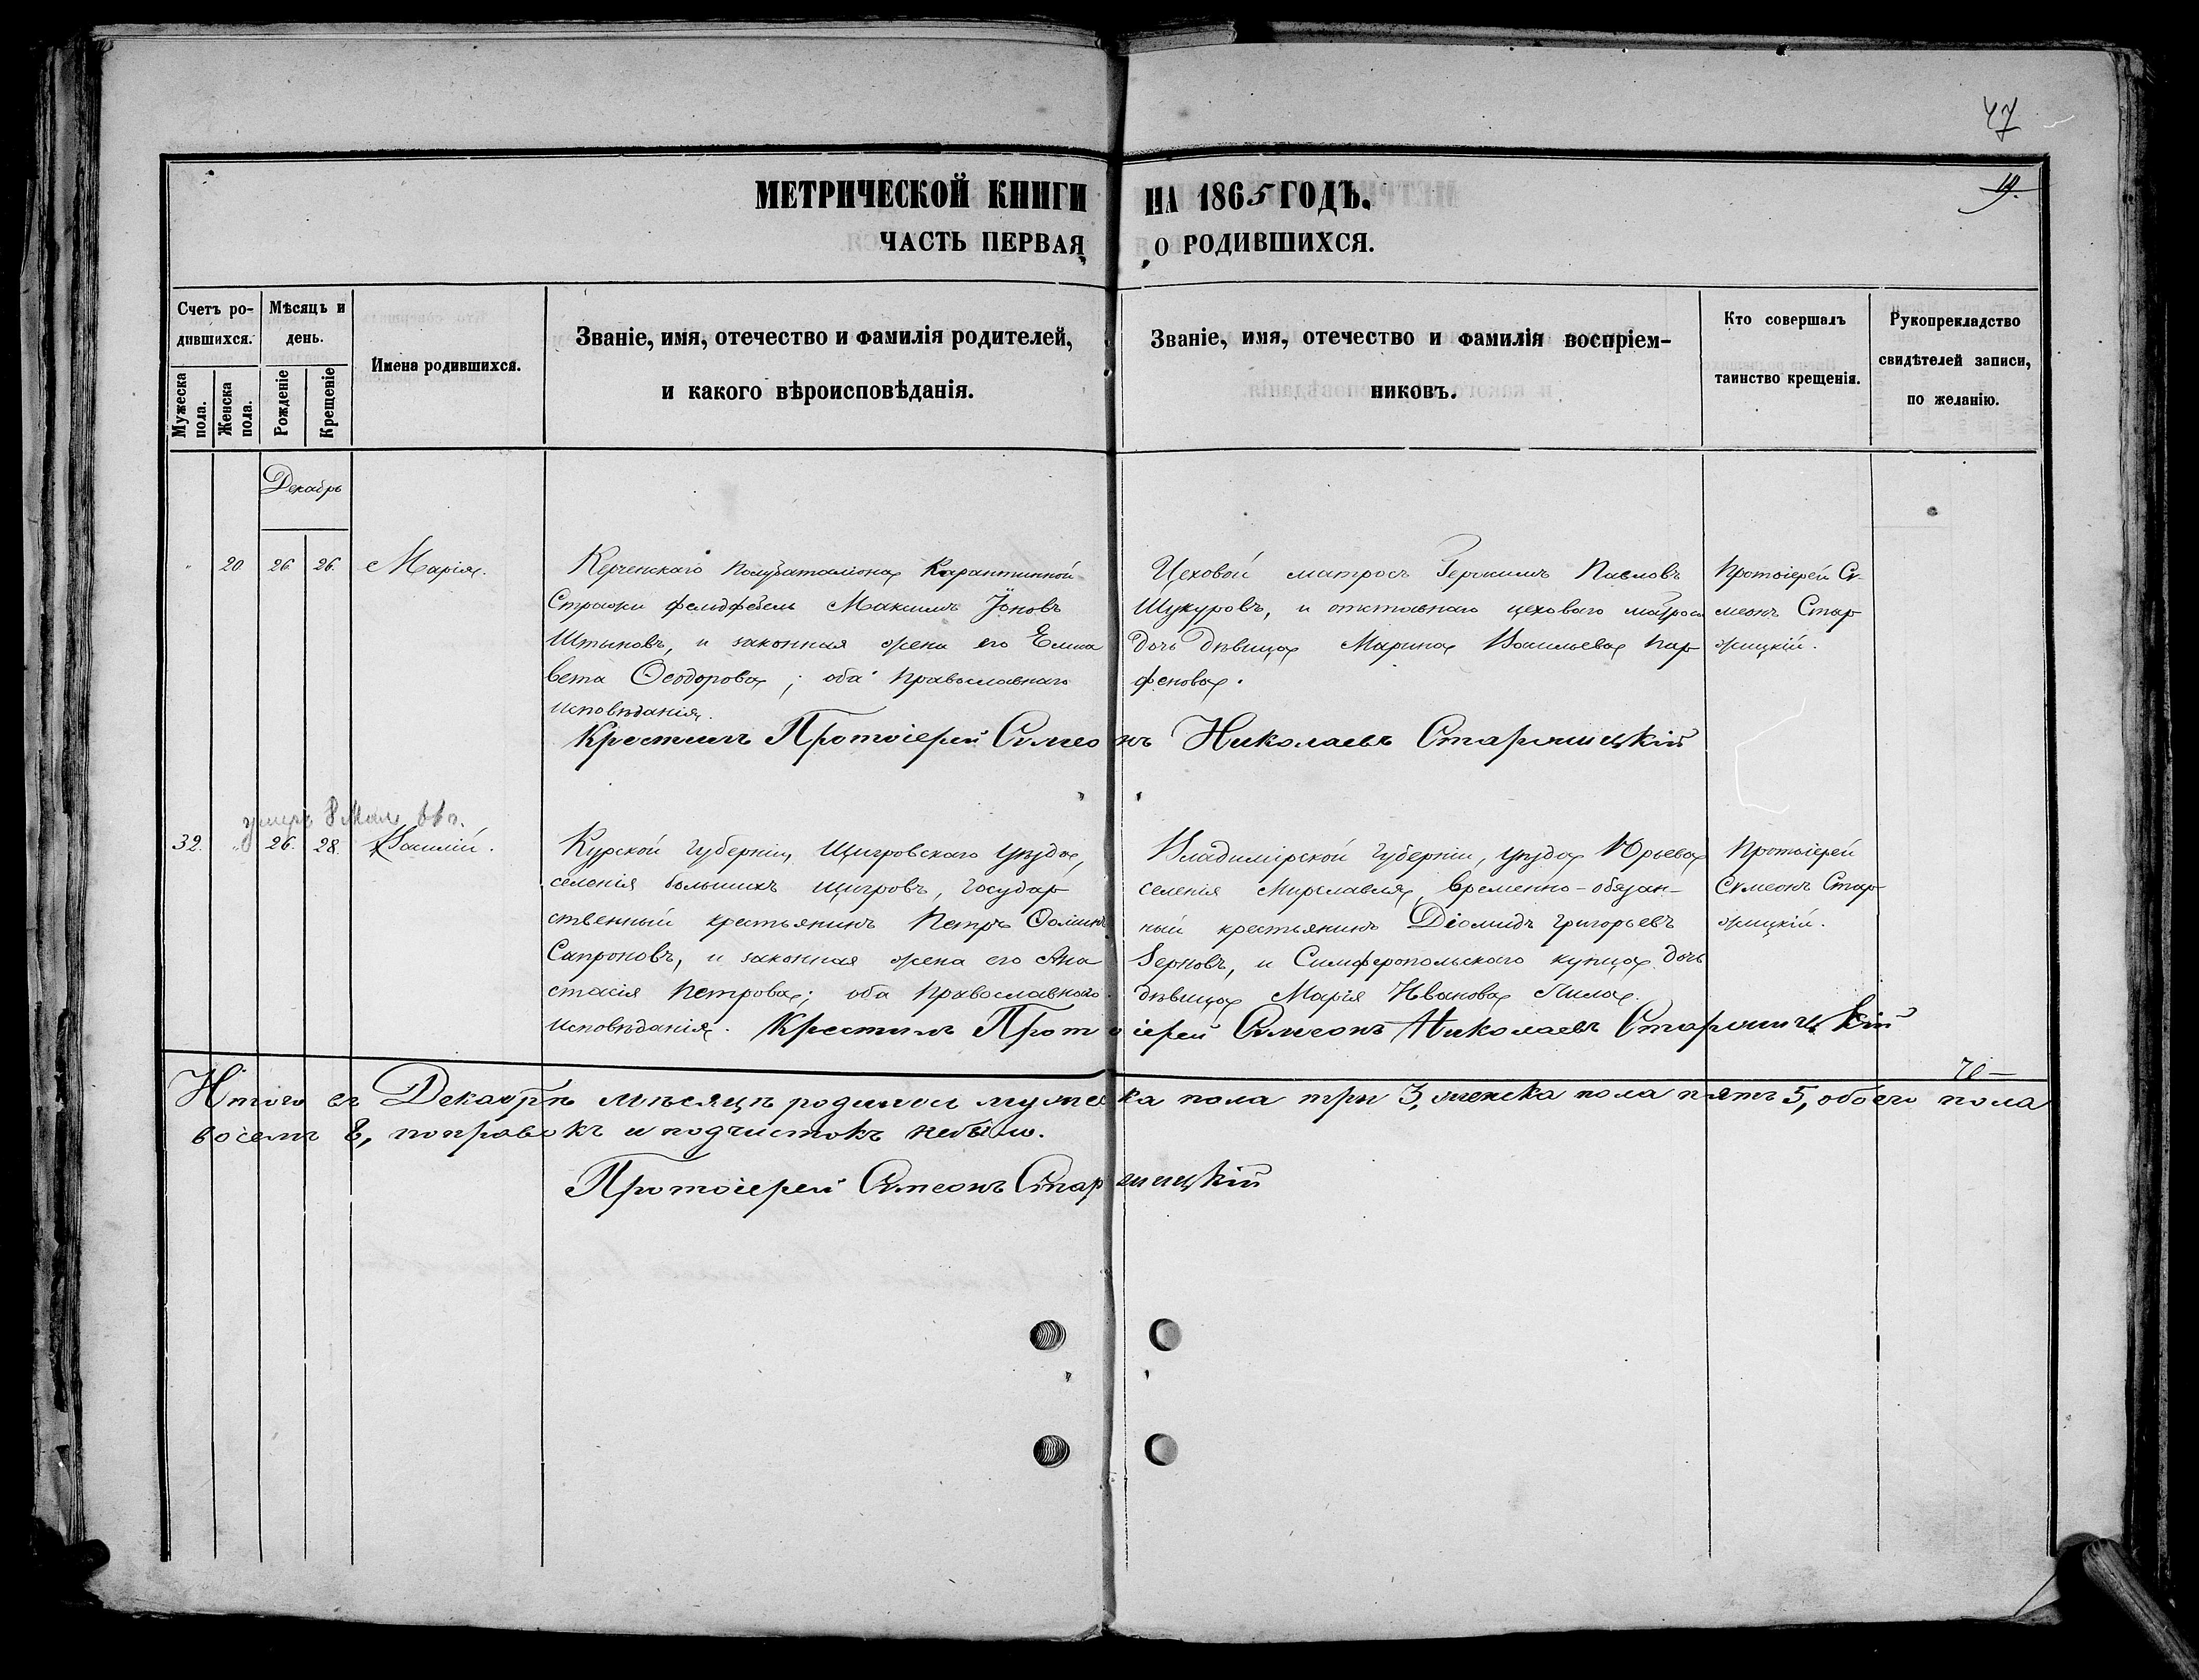 47
19.
МЕТРИЧЕСКОЙ КНИГИ НА 1865 ГОДЪ.
ЧАСТЬ ПЕРВАЯ, О РОДИВШИХСЯ.
Счетъ ро-
дившихся.
Мужеска
пола.
Женска
пола.
Мѣсяцъ и
день.
Рожденіе
Крещеніе
Имена родившихся.
Званіе, имя, отечество и фамилія родителей,
и какого вѣроисповѣданія.
Званіе, имя, отечество и фамилія воспріем-
никовъ.
Кто совершалъ
таинство крещенія.
Рукоприкладство
свидѣтелей записи,
по желанію.
Декабрь
20
26.
26.
Марія.
Керченскаго Полубаталіона Карантинной
Стражи фелдфебель Максимъ Іоновъ
Штыковъ, и законная жена его Елиса
вета Ѳеодорова; оба Православнаго
исповѣданія.
Цеховой матросъ Іеронимъ Павловъ
Шукуровъ, и отставнаго цеховаго матроса
дочь дѣвица Марина Васильева Пар
фенова.
Протоіерей Сѵ-
меонъ Стар
жицкій.
Крестилъ Протоіерей Сѵмеонъ Николаевъ Старжицкій
умеръ 8 Мая 66 г.
32.
26.
28.
Василій.
Курской губерніи, Щигровскаго уѣзда,
селенія большихъ Щигровъ, государ
ственный крестьянинъ Петръ Ѳоминъ
Сапроновъ, и законная жена его Ана
стасія Петрова; оба Православнаго
исповѣданія.
Владимірской губерніи, уѣзда Юрьева
селенія Мирславля, временно-обязан-
ный крестьянинъ Діомидъ Григорьевъ
Зерновъ, и Симферопольскаго купца дочь
дѣвица Марія Иванова Пила.
Протоіерей
Сѵмеонъ Стар
жицкій.
Крестилъ Протоіерей Сѵмеонъ Николаевъ Старжицкій
Итого въ Декабрѣ мѣсяцѣ родилось мужеска пола три 3, женска пола пять 5, обоего пола
восемь 8, поправокъ и подчистокъ небыло.
Протоіерей Сѵмеонъ Старжицкій